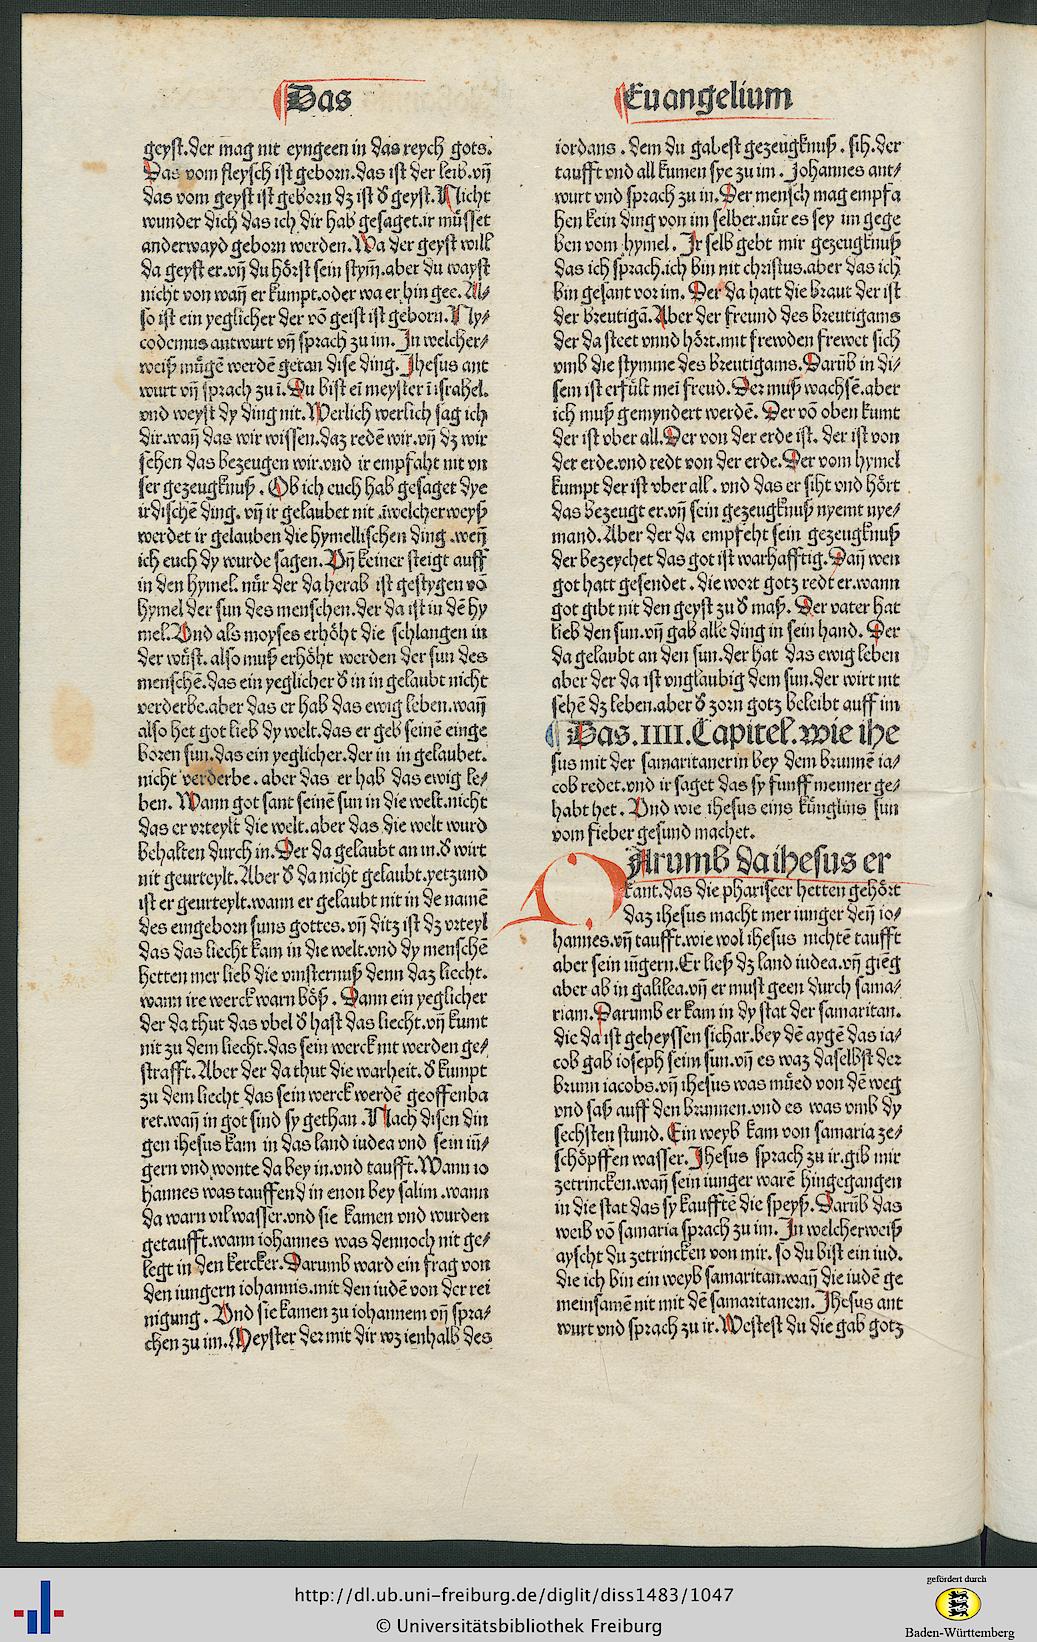 Das
Euangelium
geyst.der mag nit eyngeen in das reych gots.
Das vom fleysch ist geborn.das ist der leib.vñ
das vom geyst ist geborn dz ist d̕ geyst.Nicht
wunder dich das ich dir hab gesaget.ir müsset
anderwayd geborn werden.Wa der geyst will
da geyst er.vñ du hörst sein stym̄.aber du wayst
nicht von wañ er kumpt.oder wa er hin gee.Al⸗
so ist ein yeglicher der võ geist ist geborn.Ny⸗
codemus antwurt vñ sprach zu im.In welcher⸗
weiß mügẽ werdẽ getan dise ding.Jhesus ant
wurt vñ sprach zu ĩ.Du bist eĩ meyster ĩ israhel.
vnd weyst dy ding nit.Werlich werlich sag ich
dir.wañ das wir wissen.daz redẽ wir.vñ dz wir
sehen das bezeugen wir.vnd ir empfaht nit vn
ser gezeugknuß.Ob ich euch hab gesaget dye
irdischẽ ding.vñ ir gelaubet nit.ĩwelcherweyß
werdet ir gelauben die hymellischen ding.weñ
ich euch dy wurde sagen.Vñ keiner steigt auff
in den hymel.nür der da herab ist gestygen võ
hymel der sun des menschen.der da ist in dẽ hy
mel.Vnd als moyses erhöht die schlangen in
der wüst.also muß erhöht werden der sun des
menschẽ.das ein yeglicher d̕ in in gelaubt nicht
verderbe.aber das er hab das ewig leben.wañ
also het got lieb dy welt.das er geb seinẽ einge
boren sun.das ein yeglicher.der in in gelaubet.
nicht verderbe.aber das er hab das ewig le⸗
ben.Wann got sant seinẽ sun in die welt.nicht
das er vrteylt die welt.aber das die welt wurd
behalten durch in.Der da gelaubt an in.d̕ wirt
nit geurteylt.Aber d̕ da nicht gelaubt.yetzund
ist er geurteylt.wann er gelaubt nit in de namẽ
des eingeborn suns gottes.vñ ditz ist dz vrteyl
das das liecht kam in die welt.vnd dy menschẽ
hetten mer lieb die vinsternuß denn daz liecht.
wann ire werck warn böß.Wann ein yeglicher
der da thut das vbel d̕ hast das liecht.vñ kumt
nit zu dem liecht.das sein werck nit werden ge⸗
strafft.Aber der da thut die warheit.d̕ kumpt
zu dem liecht das sein werck werdẽ geoffenba
ret.wañ in got sind sy gethan.Nach disen din
gen ihesus kam in das land iudea vnd sein iũ⸗
gern vnd wonte da bey in.vnd taufft.Wann io
hannes was tauffend in enon bey salim.wann
da warn vil wasser.vnd sie kamen vnd wurden
getaufft.wann iohannes was dennoch nit ge⸗
legt in den kercker.Darumb ward ein frag von
den iungern iohannis.mit den iudẽ von der rei
nigung.Vnd sie kamen zu iohannem vñ spra⸗
chen zu im.Meyster der mit dir wz ienhalb des
iordans.dem du gabest gezeugknuß.sih.der
taufft vnd all kumen sye zu im.Johannes ant⸗
wurt vnd sprach zu in.Der mensch mag empfa
hen kein ding von im selber.nür es sey im gege
ben vom hymel.Ir selb gebt mir gezeugknuß
das ich sprach.ich bin nit christus.aber das ich
bin gesant vor im.Der da hatt die braut der ist
der breutigã.Aber der freund des breutigams
der da steet vnnd hört.mit frewden frewet sich
vmb die stymme des breutigams.Darũb in di⸗
sem ist erfült mei freud.Der muß wachsẽ.aber
ich muß gemyndert werdẽ.Der võ oben kumt
der ist vber all.Der von der erde ist.der ist von
der erde.vnd redt von der erde.Der vom hymel
kumpt der ist vber all.vnd das er siht vnd hört
das bezeugt er.vñ sein gezeugknuß nyemt nye⸗
mand.Aber der da empfeht sein gezeugknuß
der bezeychet das got ist warhafftig.Dañ wen
got hatt gesendet.die wort gotz redt er.wann
got gibt nit den geyst zu d̕ maß.Der vater hat
lieb den sun.vñ gab alle ding in sein hand.Der
da gelaubt an den sun.der hat das ewig leben
aber der da ist vnglaubig dem sun.der wirt nit
sehẽ dz leben.aber d̕ zorn gotz beleibt auff im
Das.IIII.Capitel.wie ihe
sus mit der samaritanerin bey dem brunnẽ ia⸗
cob redet.vnd ir saget das sy funff menner ge⸗
habt het.Vnd wie ihesus eins künglins sun
vom fieber gesund machet.
DArumb da ihesus er
kant.das die phariseer hetten gehört
daz ihesus macht mer iunger deñ io⸗
hannes.vñ taufft.wie wol ihesus nichtẽ taufft
aber sein iũgern.Er ließ dz land iudea.vñ gieg̃
aber ab in galilea.vñ er must geen durch sama⸗
riam.Darumb er kam in dy stat der samaritan.
die da ist geheyssen sichar.bey dẽ aygẽ das ia⸗
cob gab ioseph seim sun.vñ es waz daselbst der
brunn iacobs.vñ ihesus was müed von dẽ weg
vnd saß auff den brunnen.vnd es was vmb dy
sechsten stund.Ein weyb kam von samaria ze⸗
schöpffen wasser.Jhesus sprach zu ir.gib mir
zetrincken.wañ sein iunger warẽ hingegangen
in die stat das sy kaufftẽ die speyß.Darũb das
weib võ samaria sprach zu im.In welcherweiß
ayscht du zetrincken von mir.so du bist ein iud.
die ich bin ein weyb samaritan.wañ die iudẽ ge
meinsamẽ nit mit dẽ samaritanern.Jhesus ant
wurt vnd sprach zu ir.Westest du die gab gotz
http://dl.ub.uni-freiburg.de/diglit/diss1483/1047
© Universitätsbibliothek Freiburg
gefördert durch
Baden-Württemberg